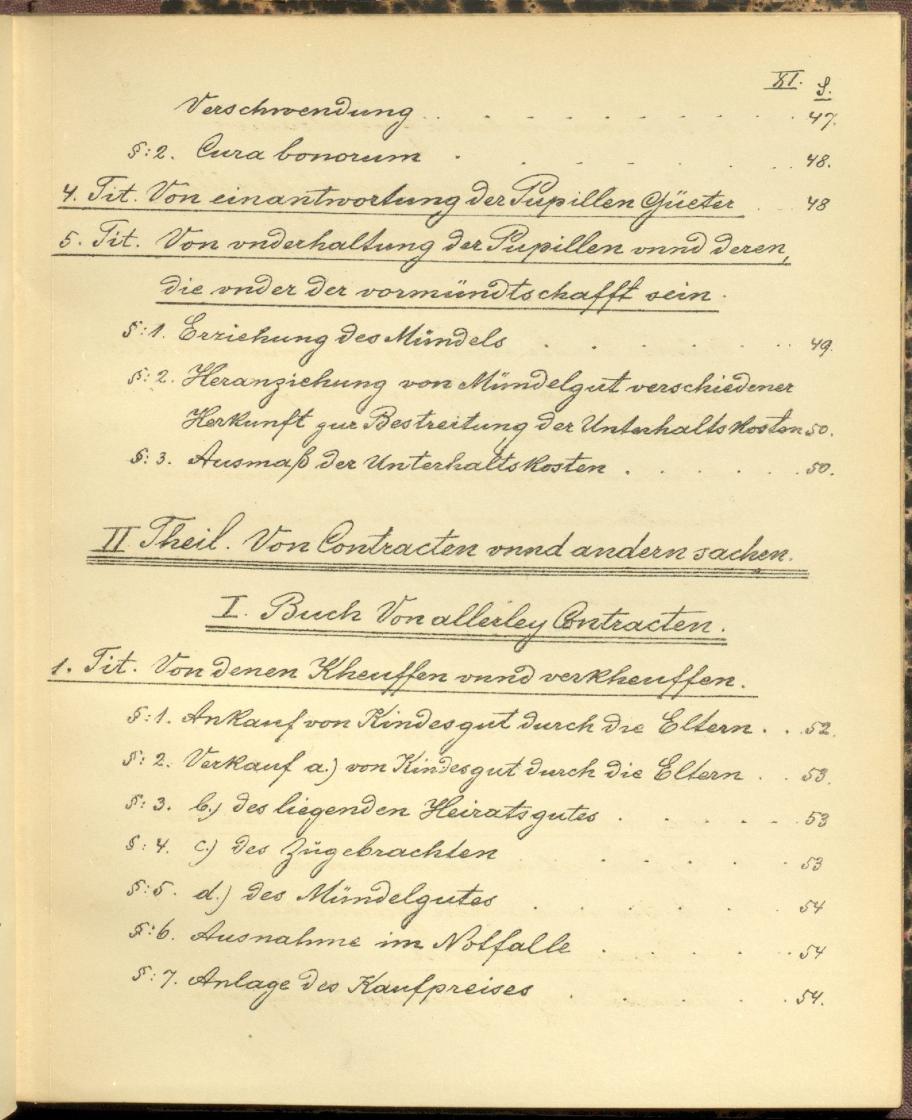 XI. S.
Verschwendung . . . . . . . . . 47.
§:2. Cura bonorum . . . . . . 48.
4. Tit. Von einantwortung der Pupillen Güeter . . 48
5. Tit. Von vnderhaltung der Pupillen vnnd deren,
die vnder der vormündtschafft sein.
§:1. Erziehung des Mündels . . . . . . . 49.
§:2. Heranziehung von Mündelgut verschiedener
Herkunft zur Bestreitung der Unterhaltskosten 50.
§:3. Ausmaß der Unterhaltskosten . . . . . . 50.
II Theil. Von Contracten vnnd andern sachen.
I. Buch Von allerley Contracten.
1. Tit. Von denen Kheuffen vnnd verkheuffen.
§:1. Ankauf von Kindesgut durch die Eltern . . . 52.
§:2. Verkauf a.) von Kindesgut durch die Eltern . . . 53.
§:3. b.) des liegenden Heiratsgutes . . . . . . 53
§:4. c.) des Zugebrachten . . . . . . 53
§:5. d.) des Mündelgutes . . . . . . 54
§:6. Ausnahme im Notfalle . . . . . . 54
§:7. Anlage des Kaufpreises . . . . . . 54.